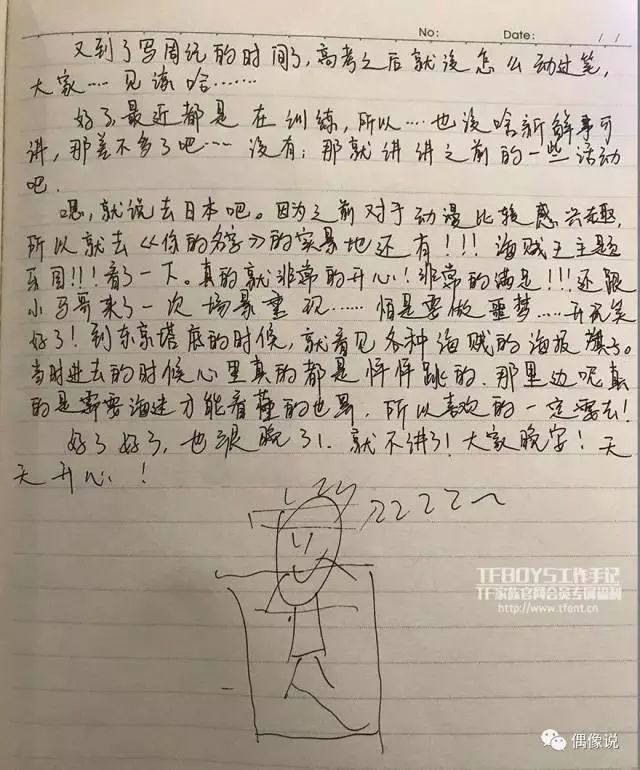 No:
Date: / /
又到了写周记的时间了,高考之后就没怎么动过笔,
大家……见谅哈……
好了,最近都是在训练,所以……也没啥新鲜事可
讲,那差不多了吧……没有;那就讲讲之前的一些活动
吧.
嗯,就说去日本吧。因为之前对于动漫比较感兴趣,
所以就去《你的名字》的实景地还有!!!海贼王主题
乐园!!!看了一下。真的就非常的开心!非常的满足!!!还跟
小马哥来了一次场景重现……怕是要做噩梦……开玩笑
好了!到东京塔底的时候,就看见各种海贼的海报旗子。
当时进去的时候心里真的都是怦怦跳的.那里边呢真
的是需要海迷才能看懂的世界,所以喜欢的一定要去!
好了好了,也很晚了!.就不讲了!大家晚安!天
天开心!
ZZZZ~
TFBOYS工作手记
TF家族官网会员专属福利
http://www.tfent.cn
偶像说